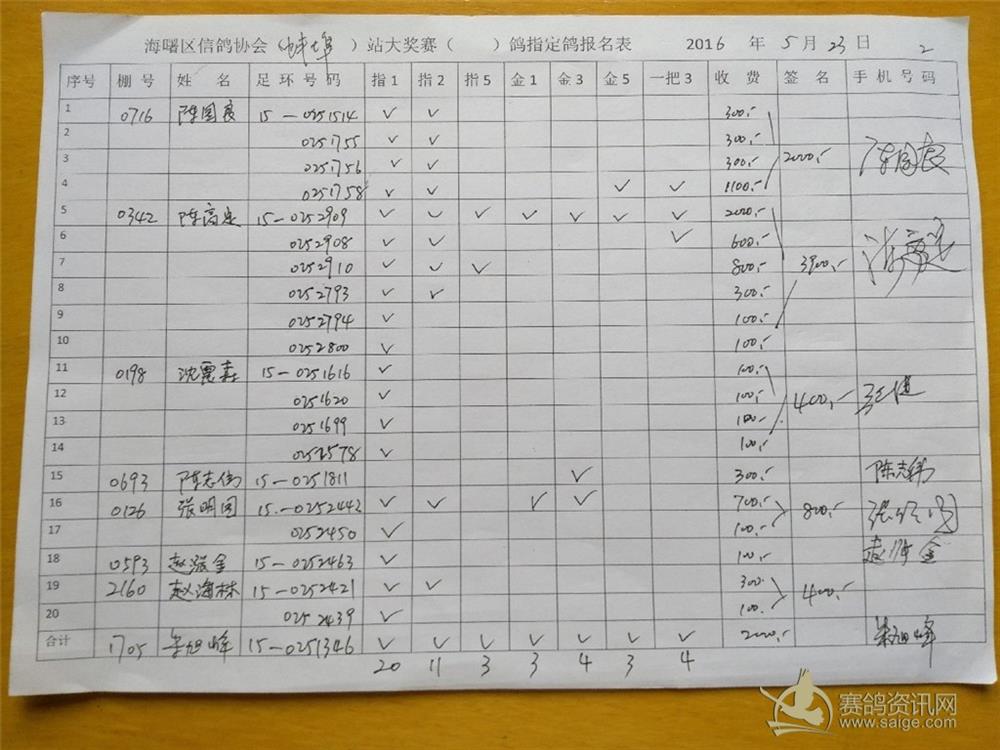 海曙区信鸽协会（蚌埠 ）站大奖赛（ ）鸽指定鸽报名表 2016 年 5 月 23 日 2
序号 棚 号 姓 名 足 环 号 码 指 1 指 2 指 5 金 1 金 3 金 5 一把 3 收 费 签 名 手 机 号 码
1 0716 陈国良 15-0251514 ✓ ✓ 300.-
2 0251755 ✓ ✓ 300.-
3 0251756 ✓ ✓ 300.- 2000.-
4 0251758 ✓ ✓ ✓ ✓ 1100.-
5 0342 陈高定 15-0252909 ✓ ✓ ✓ ✓ ✓ ✓ ✓ 2000.-
6 0252908 ✓ ✓ ✓ 600.-
7 0252910 ✓ ✓ ✓ 800.- 3900.-
8 0252793 ✓ ✓ 300.-
9 0252794 ✓ 100.-
10 0252800 ✓ 100.-
11 0198 15-0251616 ✓ 100.-
12 0251620 ✓ 100.- 400.-
13 0251699 ✓ 100.-
14 0252578 ✓ 100.-
15 0693 陈志伟 15-0251811 ✓ 300.- 陈志伟
16 0126 张明国 15-0252442 ✓ ✓ ✓ ✓ 700.- 800.-
17 0252450 ✓ 100.-
18 0593 15-0252463 ✓ 100.-
19 2160 赵海林 15-0252421 ✓ ✓ 300. 400.-
20 0252439 ✓ 100.-
合计 1705 15-0251346 ✓ ✓ ✓ ✓ ✓ ✓ ✓ 2000.-
20 11 3 3 4 3 4
赛鸽资讯网
www.saige.com